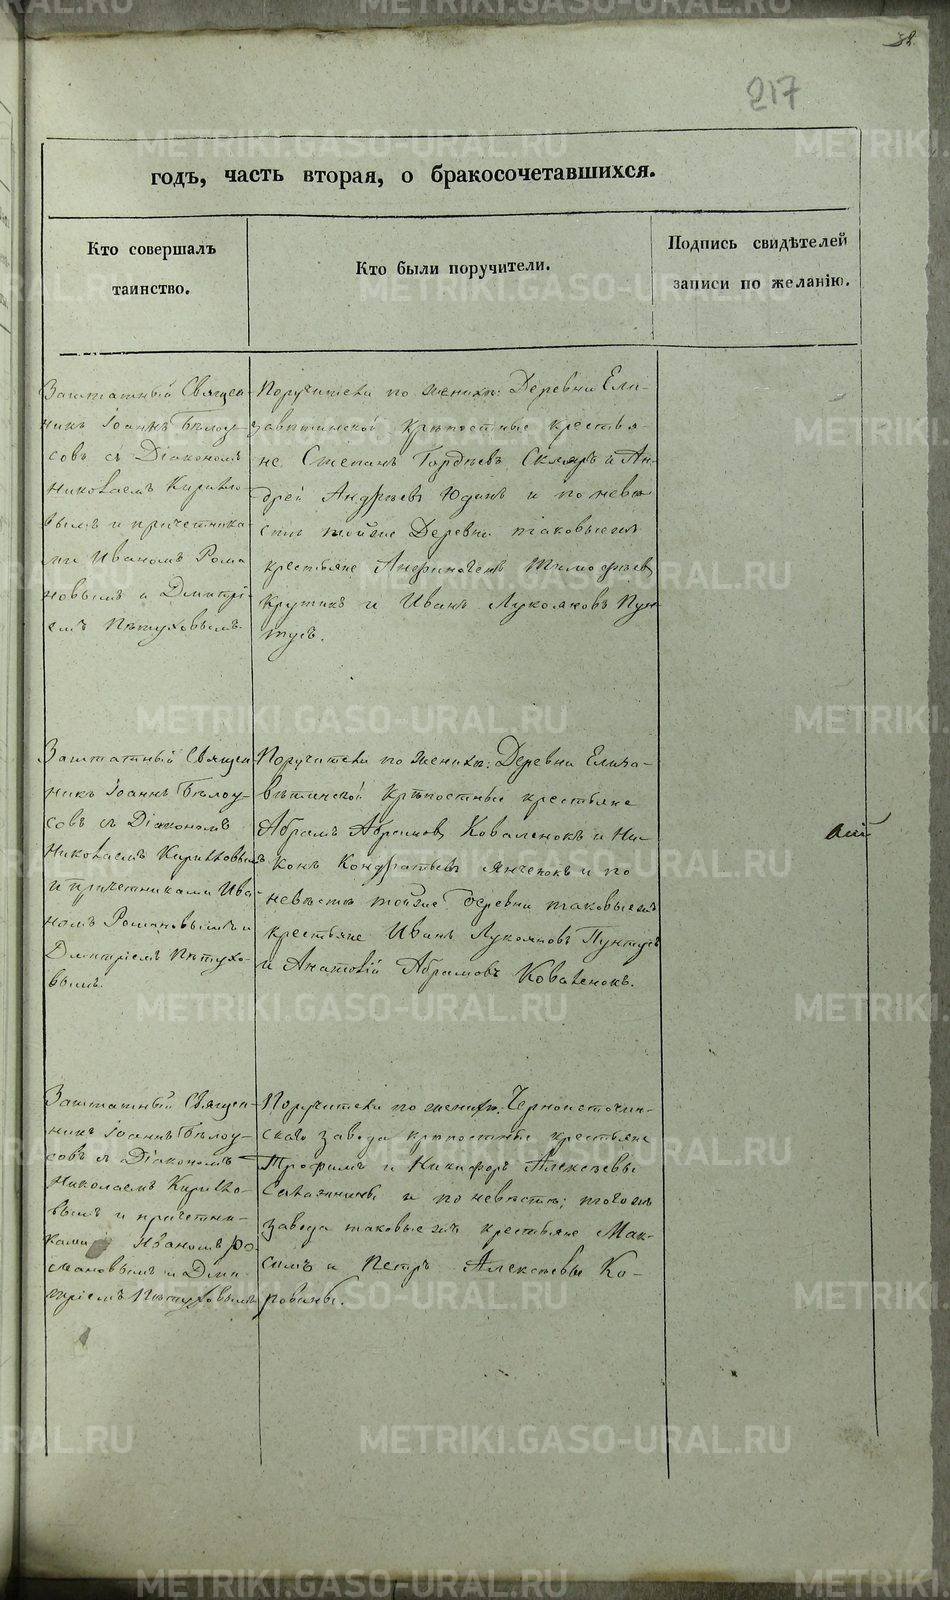 38
217
годъ, часть вторая, о бракосочетавшихся.
Кто совершалъ
таинство.
Кто были поручители.
Подпись свидѣтелей
записи по желанію.
Заштатный Священ-
никъ Іоаннъ Бѣлоу-
совъ съ Діакономъ
Николаемъ Кирилло-
вымъ и причетника-
ми Иваномъ Рома
новымъ и Дмитрі-
емъ Пѣтуховымъ.
Поручители по женихѣ: Деревни Ели-
завѣтинской крѣпостные крестья-
не Степанъ Гордѣевъ Скляръ и Ан-
дрей Андрѣевъ Юдинъ и по невѣ
стѣ тойже Деревни таковыежъ
крестьяне Анфиногенъ Тимофѣевъ
Крутикъ и Иванъ Лукояновъ Пун
тусъ.
Заштатный Священ
никъ Іоаннъ Бѣлоу-
совъ съ Діакономъ
Николаемъ Кирилловымъ
и причетниками Ива
номъ Романовымъ и
Дмитріемъ Пѣтухо-
вымъ.
Поручители по женихѣ: Деревни Елиза-
вѣтинской крѣпостные крестьяне
Абрамъ Абрамовъ Коваленокъ и Ни-
конъ Кондратьевъ Янченокъ и по
невѣстѣ тойже деревни таковыежъ
крестьяне Иванъ Лукояновъ Пунтусъ
и Анатолій Абрамовъ Коваленокъ.
Заштатный Священ-
никъ Іоаннъ Бѣлоу-
совъ съ Діакономъ
Николаемъ Кирилло-
вымъ и причетни-
ками Иваномъ Ро-
мановымъ и Дми-
тріемъ Пѣтуховымъ
Поручители по женихѣ: Черноисточин-
скаго завода крѣпостные крестьяне
Трофимъ и Никифоръ Алексѣевы
и по невѣстѣ; тогожъ
завода таковыежъ крестьяне Мак-
симъ и Петръ Алексѣевы Ко-
ровины.
METRIKI.GASO-URAL.RU